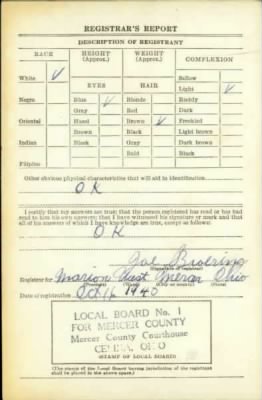 REGISTRAR'S REPORT
DESCRIPTION OF REGISTRANT
RACE HEIGHT (Approx.) WEIGHT (Approx.) COMPLEXION
White ✓ Sallow
EYES HAIR Light ✓
Negro Blue ✓ Blonde Ruddy
Gray Red Dark
Oriental Hazel Brown ✓ Freckled
Brown Black Light brown
Indian Black Gray Dark brown
Bald Black
Filipino
Other obvious physical characteristics that will aid in identification
O K
I certify that my answers are true; that the person registered has read or has had
read to him his own answers; that I have witnessed his signature or mark and that
all of his answers of which I have knowledge are true, except as follows:
O K
Joe Broering
(Signature of registrar)
Registrar for Marion East Mercer Ohio
(Precinct) (City or county) (State)
Date of registration Oct 16 1940
LOCAL BOARD No. 1
FOR MERCER COUNTY
Mercer County Courthouse
CELINA, OHIO
(STAMP OF LOCAL BOARD)
(The stamp of the Local Board having jurisdiction of the registrant
shall be placed in the above space.)